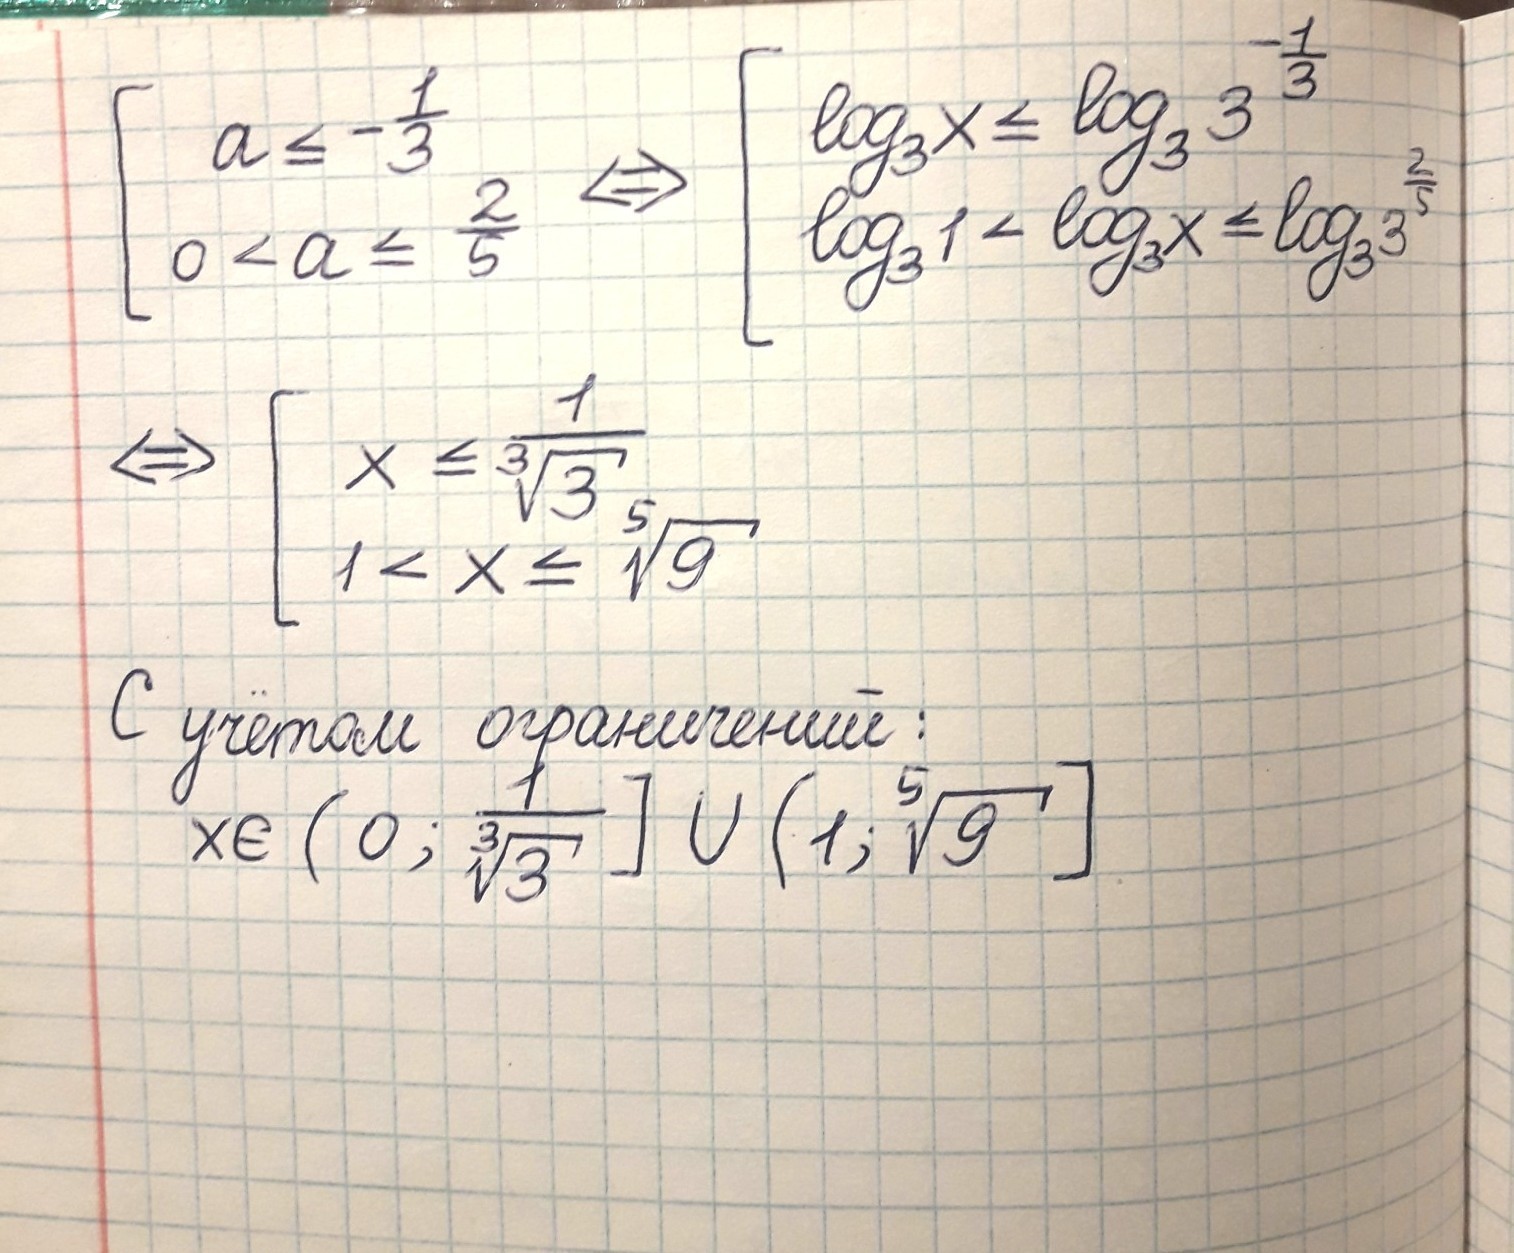 [ a ≤ -1/3 ⇔ [ log₃x ≤ log₃3^(-1/3)
0 < a ≤ 2/5 log₃1 < log₃x ≤ log₃3^(2/5)
⇔ [ x ≤ 1/∛3
1 < x ≤ ⁵√9
С учётом ограничений:
x∈(0; 1/∛3] ∪ (1; ⁵√9]